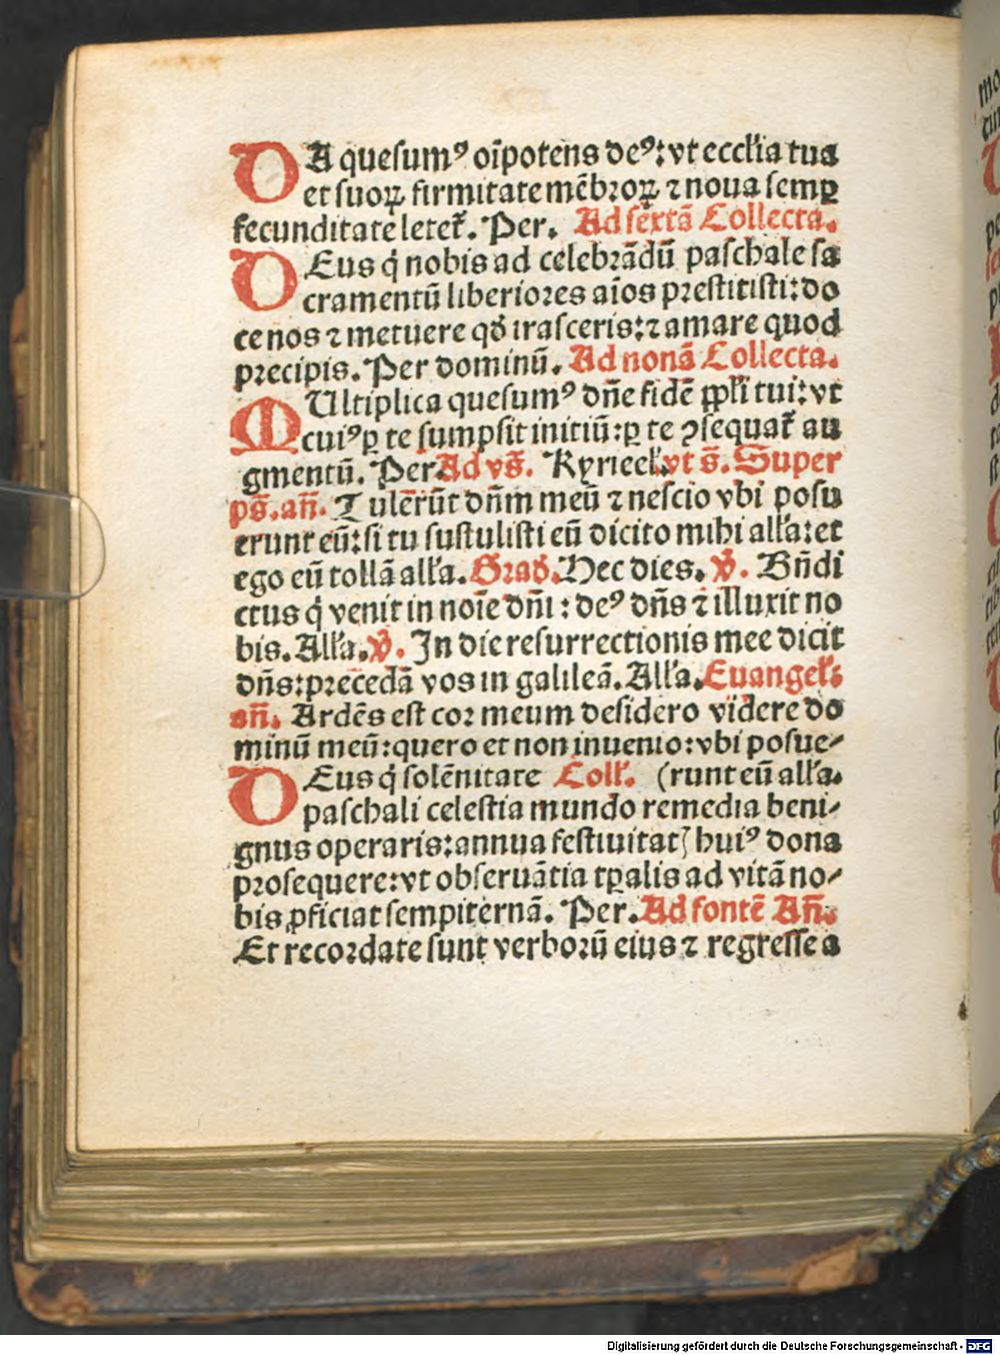 DA quesumꝰ oīpotens deꝰ: vt eccl'ia tua
et suoꝝ firmitate mēbroꝝ ⁊ noua semꝑ
fecunditate letet᷑. Per. Ad sextā Collecta.
DEus q̇ nobis ad celebrādū paschale sa
cramentū liberiores aīos prestitisti: do
ce nos ⁊ metuere qđ irasceris: ⁊ amare quod
precipis. Per dominū. Ad nonā Collecta.
MUltiplica quesumꝰ dn̄e fidē ppl'i tui: vt
cuiꝰ ꝑ te sumpsit initiū: ꝑ te ꝯsequat᷑ au
gmentū. Per. Ad vs̄. Kyrieel'. vt s̄. Super
ps̄. an̄. Tulerūt dn̄m meū ⁊ nescio vbi posu
erunt eū: si tu sustulisti eū dicito mihi all'a: et
ego eū tollā all'a. Građ. Hec dies. ℣. Bn̄di
ctus q̇ venit in noīe dn̄i: deꝰ dn̄s ⁊ illuxit no
bis. All'a. ℣. In die resurrectionis mee dicit
dn̄s: precedā vos in galileā. All'a. Euangel':
an̄. Ardēs est cor meum desidero videre do
minū meū: quero et non inuenio: vbi posue-
DEus q̇ solēnitate Coll'. (runt eū all'a.
paschali celestia mundo remedia beni-
gnus operaris: annua festiuitatꝭ huiꝰ dona
prosequere: vt obseruātia tꝑalis ad vitā no-
bis ꝓficiat sempiternā. Per. Ad fontē An̄.
Et recordate sunt verborū eius ⁊ regresse a
Digitalisierung gefördert durch die Deutsche Forschungsgemeinschaft - DFG